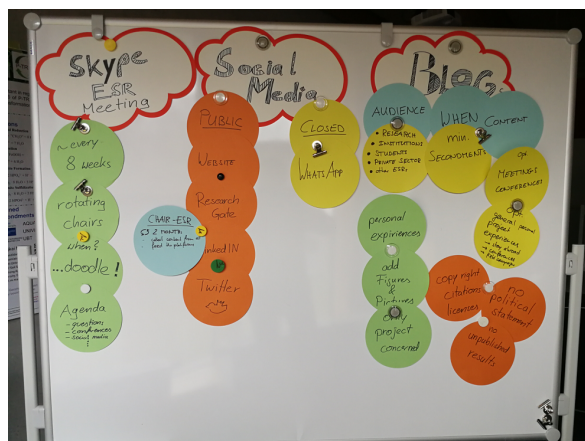 Skype
ESR
Meeting
~ every
8 weeks
rotating
chairs
when?
...doodle!
Agenda
- questions
- conferences
- social media
Social
Media
PUBLIC
WEBSITE
Research
Gate
linkedIN
Twitter
CHAIR-ESR
2 MONTH
CLOSED
WHATSAPP
BLOG
AUDIENCE
• RESEARCH
INSTITUTIONS
• STUDENTS
• PRIVATE SECTOR
• other ESRs
WHEN CONTENT
min.
SECONDMENTS
MEETINGS
CONFERENCES
opt.
general personal
project
experiences
personal
expiriences
add
Figures
&
Pictures
only
project
concerned
copy right
citations
licenses
no
political
statement
no
unpublished
results